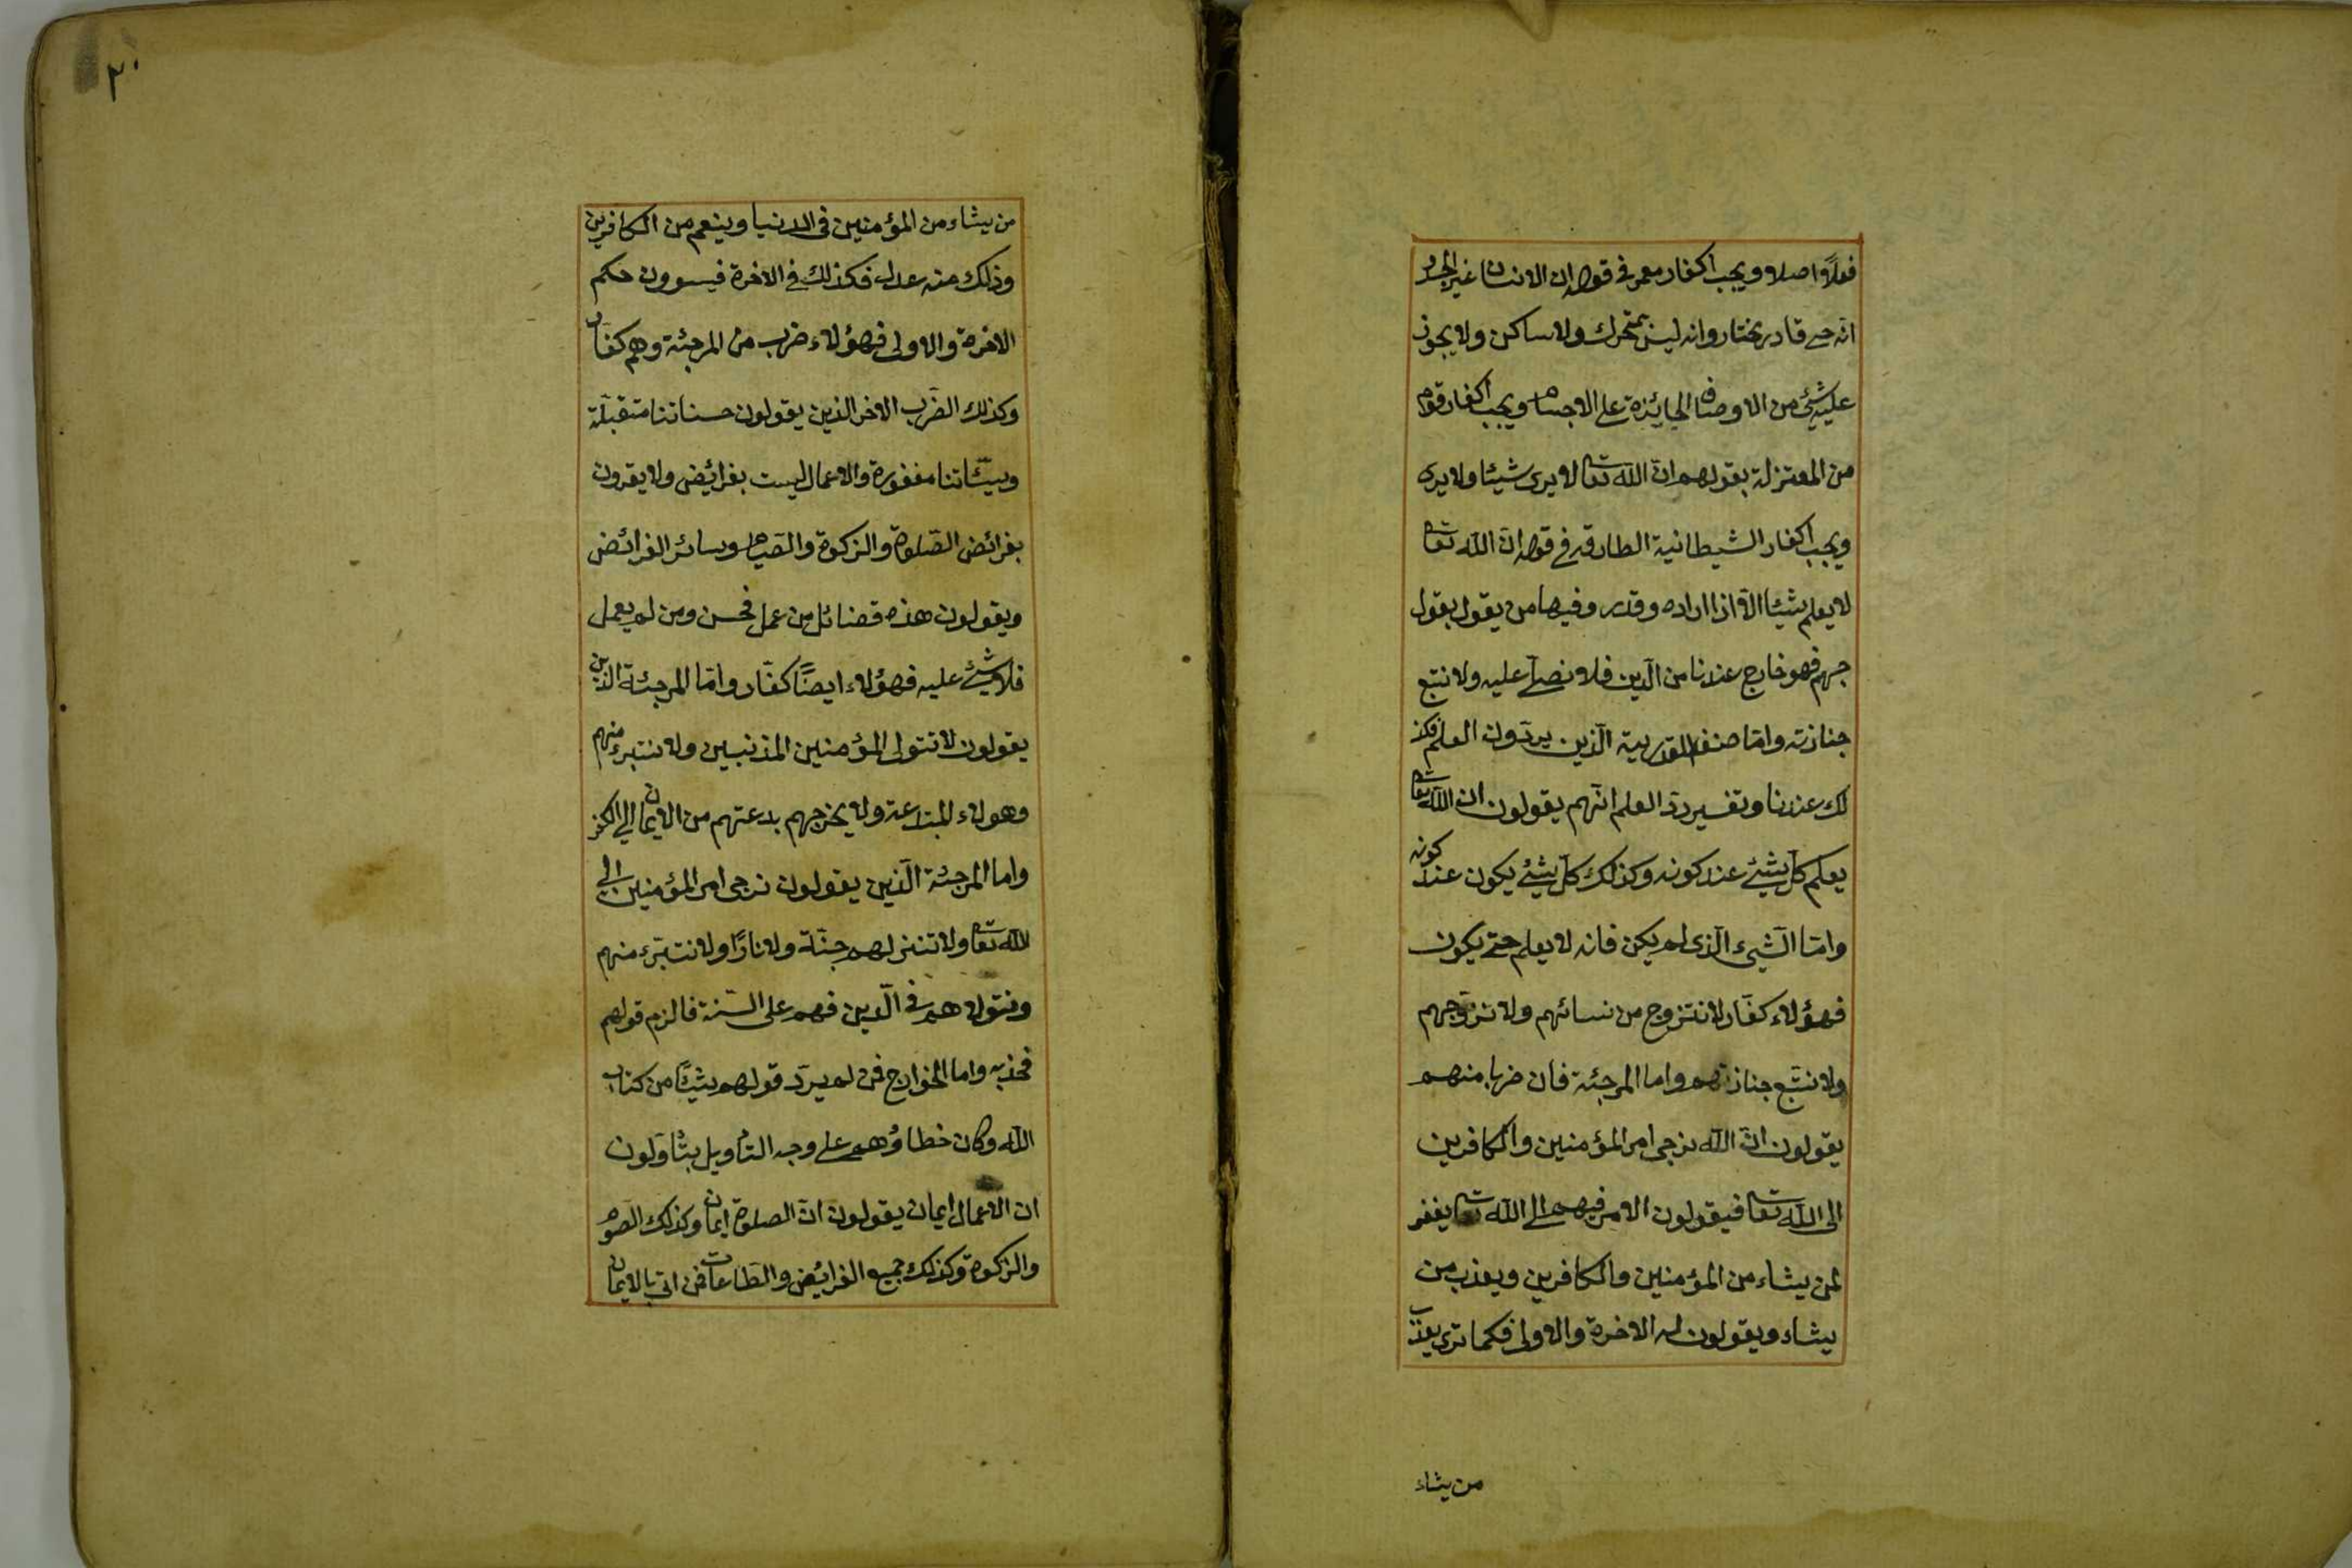 فعلاً اصلا و يجب اكفار معمر فى قوله ان الانسان غير الجسد
انه حي قادر مختار وانه ليس بمتحرك ولا ساكن ولا يجوز
عليه شئ من الاوصاف الجائزة على الاجسام ويجب اكفار قوم
من المعتزلة بقولهم ان الله تعالى لا يرى شيئا ولا يرى
ويجب اكفار الشيطانية الطارقه فى قوله ان الله تعالى
لا يعلم شيئا الا اذا اراده وقدره وفيها من يقول بقول
جهم فهو خارج عندنا من الدين فلا نصلى عليه ولا نتبع
جنازته واما صنف القدرية الذين يردون العلم فكذ
لك عندنا وتفسير رد العلم انهم يقولون ان الله تعالى
يعلم كل شئ عند كونه وكذلك كل شئ يكون عند كونه
واما الشئ الذى لم يكن فانه لا يعلم حتى يكون
فهؤلاء كفار لا نتزوج من نسائهم ولا نزوجهم
ولا نتبع جنازتهم واما المرجئة فان ضربا منهم
يقولون ان الله نرجى امر المؤمنين والكافرين
الى الله تعالى فيقولون الامر فيهم الى الله تعالى يغفر
لمن يشاء من المؤمنين والكافرين ويعذب من
يشاء ويقولون له الاخرة والاولى فكما ترى يعذب
من يشاء
٢٠
من يشاء من المؤمنين فى الدنيا وينعم من الكافرين
وذلك منه عدل فكذلك فى الاخرة فيسوون حكم
الاخرة والاولى فهؤلاء ضرب من المرجئة وهم كفار
وكذلك الضرب الاخر الذين يقولون حسناتنا متقبلة
وسيئاتنا مغفورة والاعمال ليست بفرائض ولا يقرون
بفرائض الصلوة والزكوة والصيام وسائر الفرائض
ويقولون هذه فضائل من عمل فحسن ومن لم يعمل
فلا شئ عليه فهؤلاء ايضاً كفار واما المرجئة الذين
يقولون لا نتولى المؤمنين المذنبين ولا نتبرء منهم
وهولاء المبتدعة ولا يخرجهم بدعتهم من الايمان الى الكفر
واما المرجئة الذين يقولون نرجى امر المؤمنين الى
الله تعالى ولا ننزلهم جنة ولا نارًا ولا نتبرء منهم
ونتولاهم فى الدين فهم على السنة فالزم قولهم
فخذ به واما الخوارج فمن لم يرد قولهم شيئًا من كتاب
الله وكان خطاؤهم على وجه التأويل يتأولون
ان الاعمال ايمان يقولون ان الصلوة ايمان وكذلك الصوم
والزكوة وكذلك جميع الفرائض والطاعات فمن اتى بالايمان